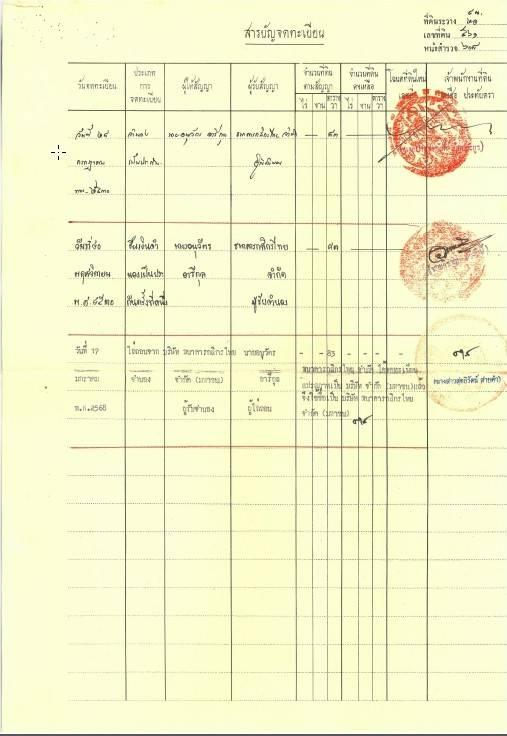 สารบัญจดทะเบียน
ที่ดินระวาง
เลขที่ดิน ๕๖๑
หน้าสำรวจ
วันจดทะเบียน
ประเภท
การ
จดทะเบียน
ผู้ให้สัญญา
ผู้รับสัญญา
จำนวนที่ดิน
ตามสัญญา
ไร่ งาน ตาราง
วา
จำนวนที่ดิน
คงเหลือ
ไร่ งาน ตาราง
วา
โฉนดที่ดินใหม่
เจ้าพนักงานที่ดิน
ประทับตรา
วันที่ ๒๘ จำนอง — ๘๓
กรกฎาคม เป็นประกัน ผู้รับจำนอง
วันที่ ขึ้นเงินจำ นายอนุวัตร ธนาคารกสิกรไทย — ๘๓
พฤศจิกายน นองเป็นประ อารีกุล จำกัด
พ.ศ. ๒๕๓๐ กันครั้งที่หนึ่ง ผู้รับจำนอง
วันที่ 17 ไถ่ถอนจาก บริษัท ธนาคารกสิกรไทย นายอนุวัตร - - 83 - - - -
มกราคม จำนอง จำกัด (มหาชน) อารีกุล
พ.ศ.2568 ผู้รับจำนอง ผู้ไถ่ถอน
ธนาคารกสิกรไทย จำกัด ได้จดทะเบียน
แปรสภาพเป็น บริษัท จำกัด (มหาชน)แล้ว
จึงใช้ชื่อเป็น บริษัท ธนาคารกสิกรไทย
จำกัด (มหาชน)